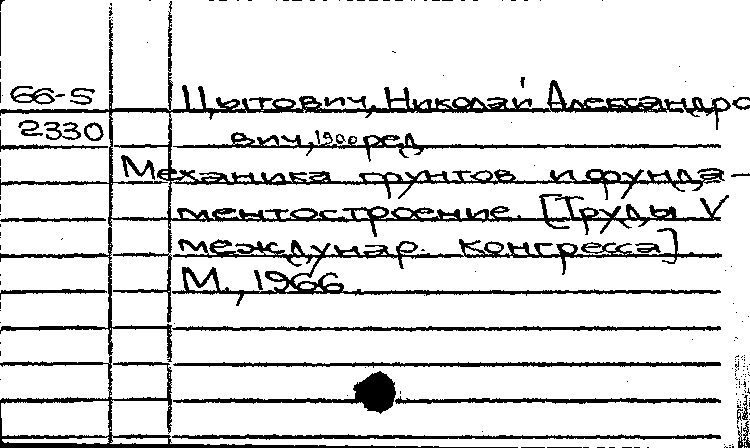 66-5 Цытович, Николай Александро
2330 вич, 1900 ред
Механика грунтов и фунда-
ментостроение. [Труды V
междунар. конгресса]
М., 1966.